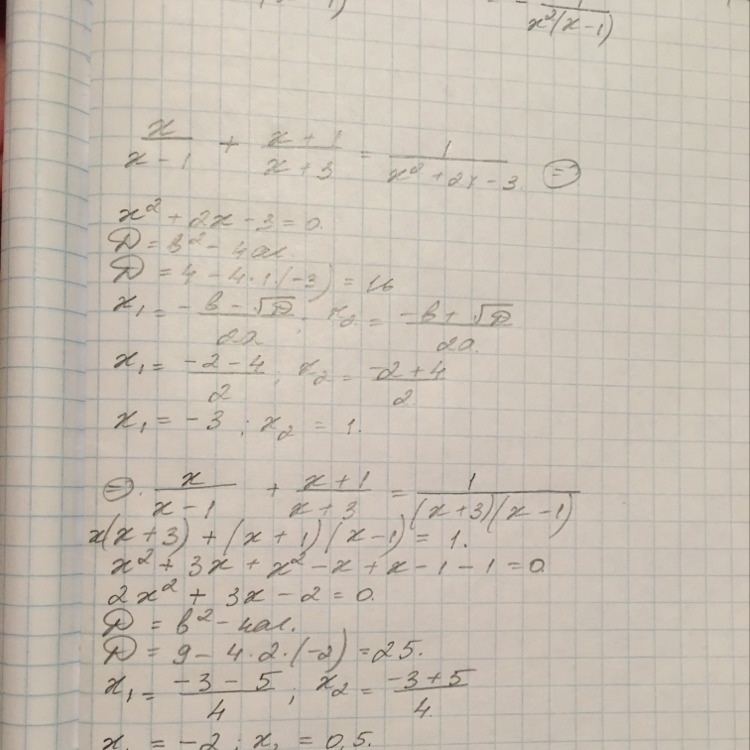 = - 1/(x²(x-1))
x/(x-1) + (x+1)/(x+3) = 1/(x²+2x-3) ⊜
x² + 2x - 3 = 0.
D = b² - 4ac.
D = 4 - 4·1·(-3) = 16
x₁ = (-b-√D)/2a ; x₂ = (-b+√D)/2a.
x₁ = (-2-4)/2 ; x₂ = (-2+4)/2
x₁ = -3 ; x₂ = 1.
⊜. x/(x-1) + (x+1)/(x+3) = 1/((x+3)(x-1))
x(x+3) + (x+1)(x-1) = 1.
x² + 3x + x² - x + x - 1 - 1 = 0
2x² + 3x - 2 = 0.
D = b² - 4ac.
D = 9 - 4·2·(-2) = 25.
x₁ = (-3-5)/4 ; x₂ = (-3+5)/4.
x₁ = -2 ; x₂ = 0,5.